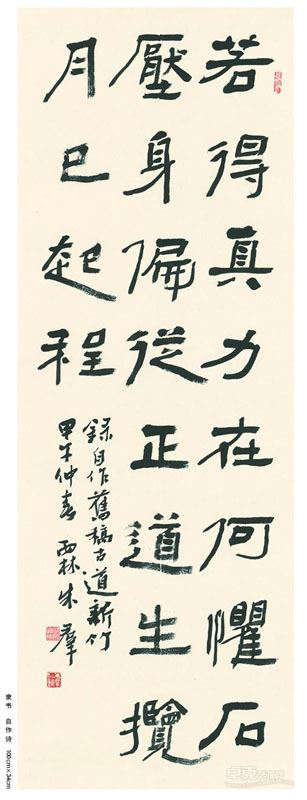 若得真力在何懼石
壓身偏從正道生攬
月已起程
錄自作舊稿古道新竹
甲午仲春 西林朱羣
隶书 自作诗 100cm×34cm